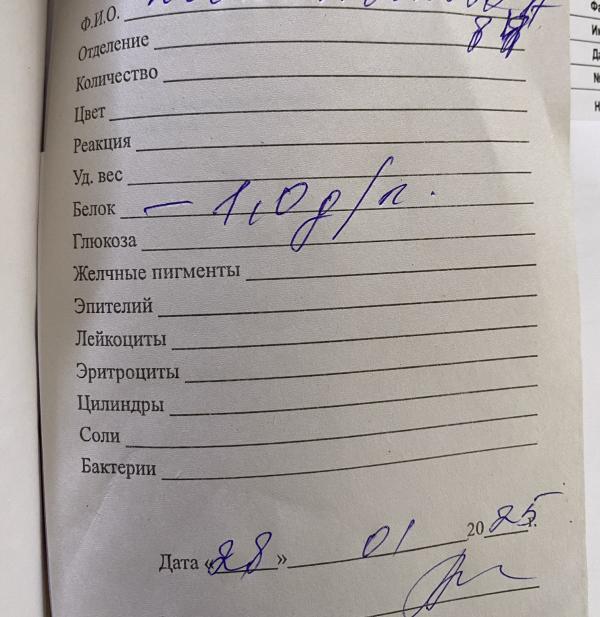 Ф.И.О.
Отделение
Количество
Цвет
Реакция
Уд. вес
Белок — 1,0 g/л.
Глюкоза
Желчные пигменты
Эпителий
Лейкоциты
Эритроциты
Цилиндры
Соли
Бактерии
Дата «28» 01 2025 г.